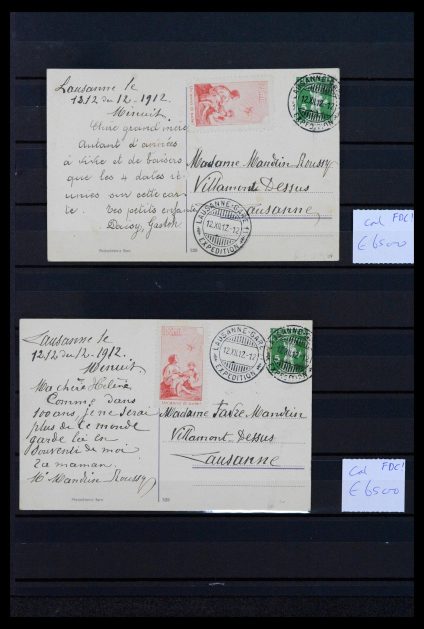 Lausanne le
12 12 du 12 - 1912.
Minuit
Chère grand'mère
Autant d'années
à vivre et de baisers
que les 4 dates ré-
unies sur cette car-
te. Tes petits enfants
Daisy, Gaston
Madame Mandrin Roussy
Villamont Dessus
Lausanne
LAUSANNE-GARE
12.XII.12.-12
EXPEDITION
LAUSANNE-GARE
12.XII.12.-12
EXPEDITION
Cat FDC!
€ 6500
Lausanne le
12.12 du 12 - 1912.
Minuit
Ma chère Hélène
Comme dans
100 ans, je ne serai
plus de ce monde
garde la en
souvenir de moi
ta maman
Me Mandrin Roussy
Madame Favre Mandrin
Villamont Dessus
Lausanne
LAUSANNE-GARE
12.XII.12.-12
EXPEDITION
Cat FDC!
€ 6500